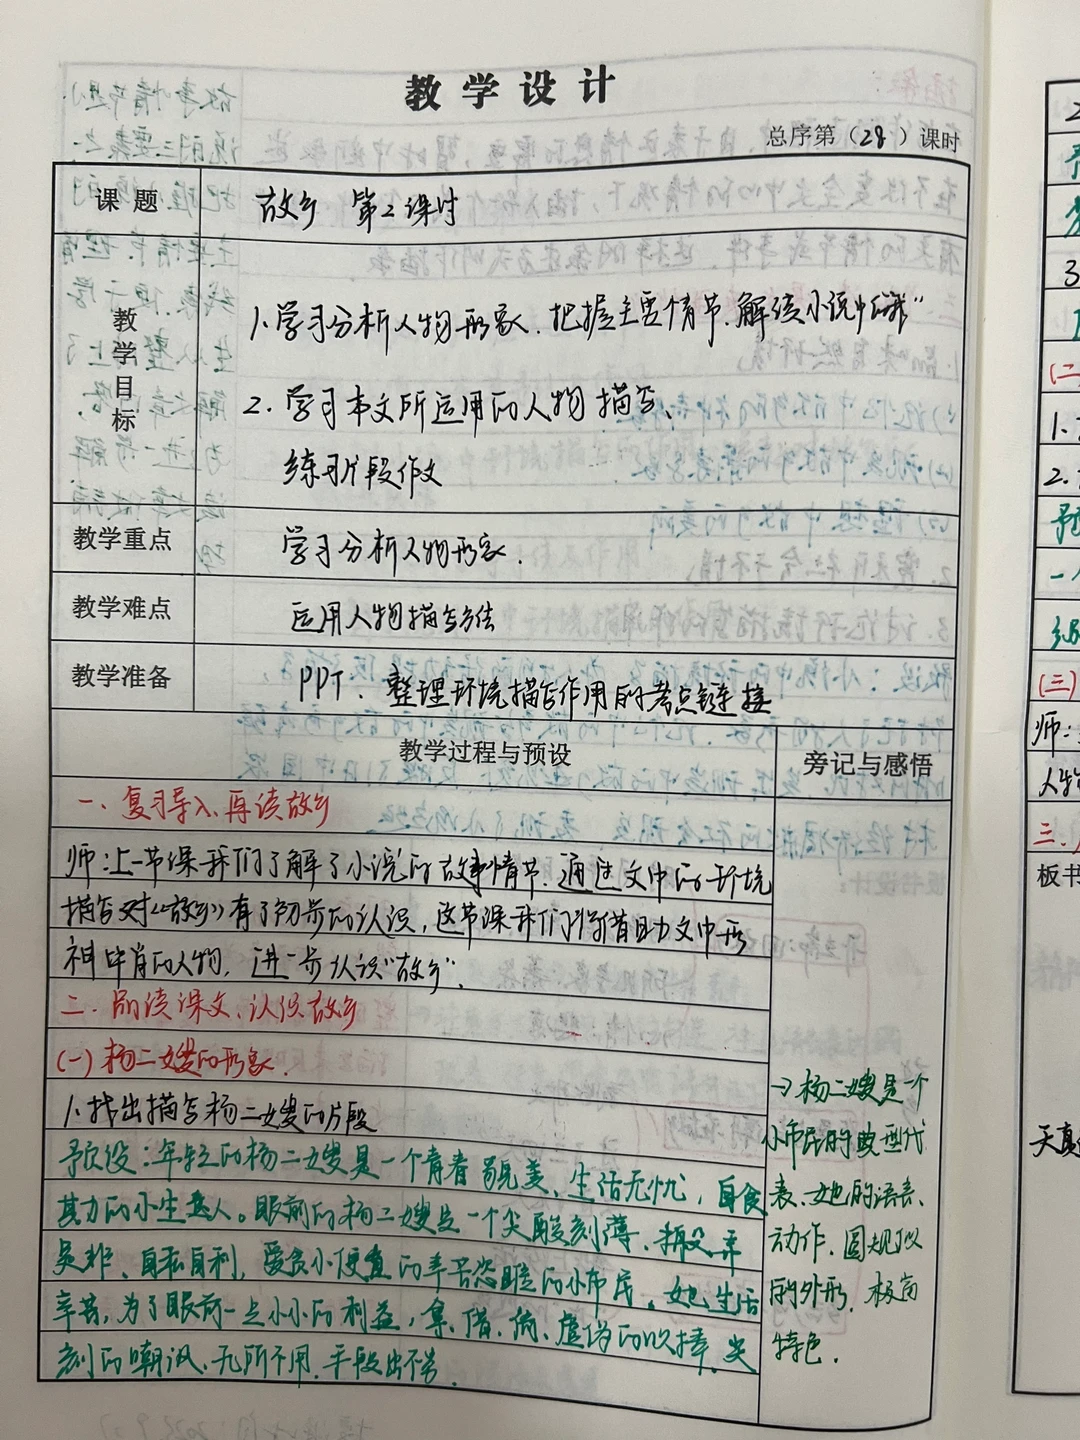 教学设计
总序第（28）课时
课题 故乡 第2课时
教学目标
1.学习分析人物形象、把握主要情节、解读小说中的"我"
2.学习本文所运用的人物描写、
练习片段作文
教学重点 学习分析人物形象.
教学难点 运用人物描写方法
教学准备 PPT、整理环境描写作用的考点链接
教学过程与预设
一、复习导入、再读故乡
师：上一节课我们了解了小说的故事情节、通过文中的环境
描写对《故乡》有了初步的认识，这节课我们将借助文中形
神毕肖的人物，进一步认识"故乡".
二、品读课文、认识故乡
(一)杨二嫂的形象.
1.找出描写杨二嫂的片段
预设：年轻的杨二嫂是一个青春貌美、生活无忧，自食
其力的小生意人。眼前的杨二嫂是一个尖酸刻薄、搬弄
是非、自私自利，爱贪小便宜的辛苦恣睢的小市民。她生活
辛苦，为了眼前一点小小的利益，拿、借、偷、虚伪的
尖
刻的嘲讽、无所不用.手段出尽.
旁记与感悟
→杨二嫂是一个
小市民的典型代
表、她的语言、
动作、圆规似
的外形、极尚
特色.
2
(二
1.
2.
一
(三)
师：
人物
三、
板书
天真